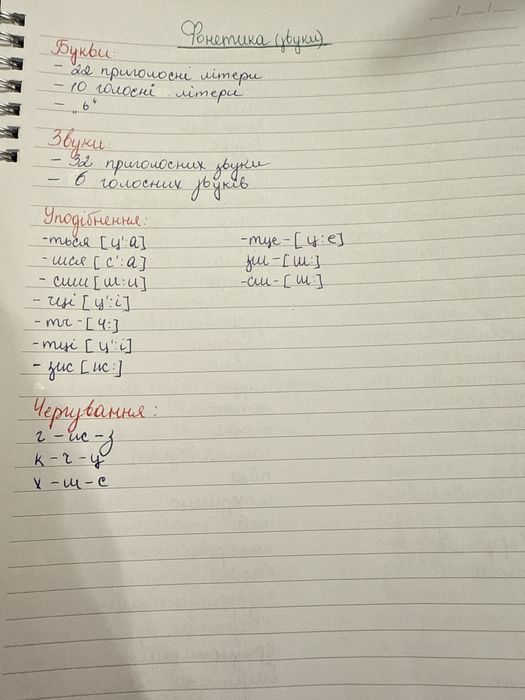 Фонетика (звуки)
Букви:
- 22 приголосні літери
- 10 голосні літери
- „ь“
Звуки:
- 32 приголосних звуки
- 6 голосних звуків
Уподібнення:
-ться [ц':а]
-шся [с':а]
- сши [ш:и]
- чці [ц':і]
- тч -[ч:]
- тці [ц':і]
- зж [ж:]
-тце -[ц:е]
зш -[ш:]
-сш -[ш:]
Чергування:
г - ж - з
к - ч - ц
х - ш - с